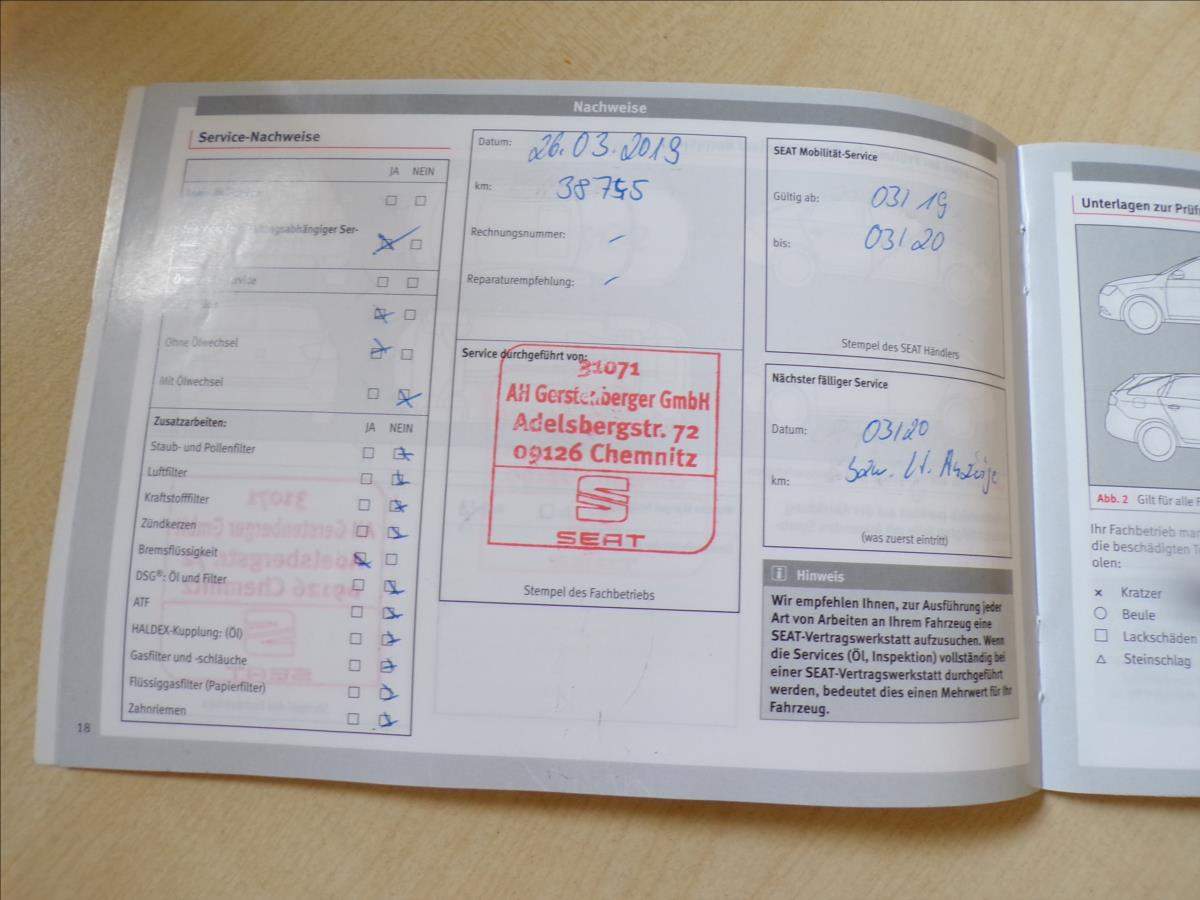 Nachweise
Service-Nachweise
JA NEIN
Ser-
Ohne Ölwechsel
Mit Ölwechsel
Zusatzarbeiten: JA NEIN
Staub- und Pollenfilter
Luftfilter
Kraftstofffilter
Zündkerzen
Bremsflüssigkeit
DSG®: Öl und Filter
ATF
HALDEX-Kupplung: (Öl)
Gasfilter und -schläuche
Flüssiggasfilter (Papierfilter)
Zahnriemen
18
Datum: 26.03.2019
km:
Rechnungsnummer: -
Reparaturempfehlung: -
Service durchgeführt von:
31071
AH Gerstenberger GmbH
Adelsbergstr. 72
09126 Chemnitz
SEAT
Stempel des Fachbetriebs
SEAT Mobilität-Service
Gültig ab: 03/19
bis: 03/20
Stempel des SEAT Händlers
Nächster fälliger Service
Datum: 03/20
bzw. lt. Anzeige
km:
(was zuerst eintritt)
i Hinweis
Wir empfehlen Ihnen, zur Ausführung jeder
Art von Arbeiten an Ihrem Fahrzeug eine
SEAT-Vertragswerkstatt aufzusuchen. Wenn
die Services (Öl, Inspektion) vollständig bei
einer SEAT-Vertragswerkstatt durchgeführt
werden, bedeutet dies einen Mehrwert für Ihr
Fahrzeug.
Unterlagen zur
Abb. 2 Gilt für alle
Ihr Fachbetrieb
die beschädigten
olen:
x Kratzer
Beule
Lackschäden
Steinschlag